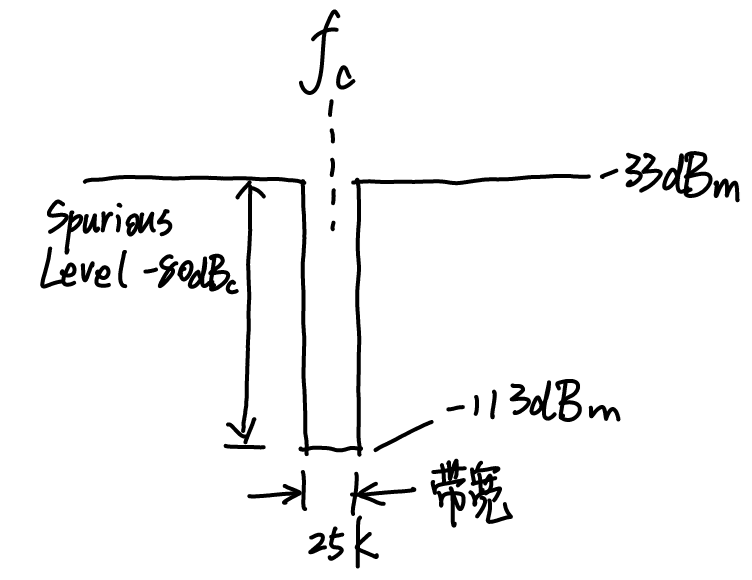 fc
-33dBm
Spurious
Level -80dBc
-113dBm
带宽
25K